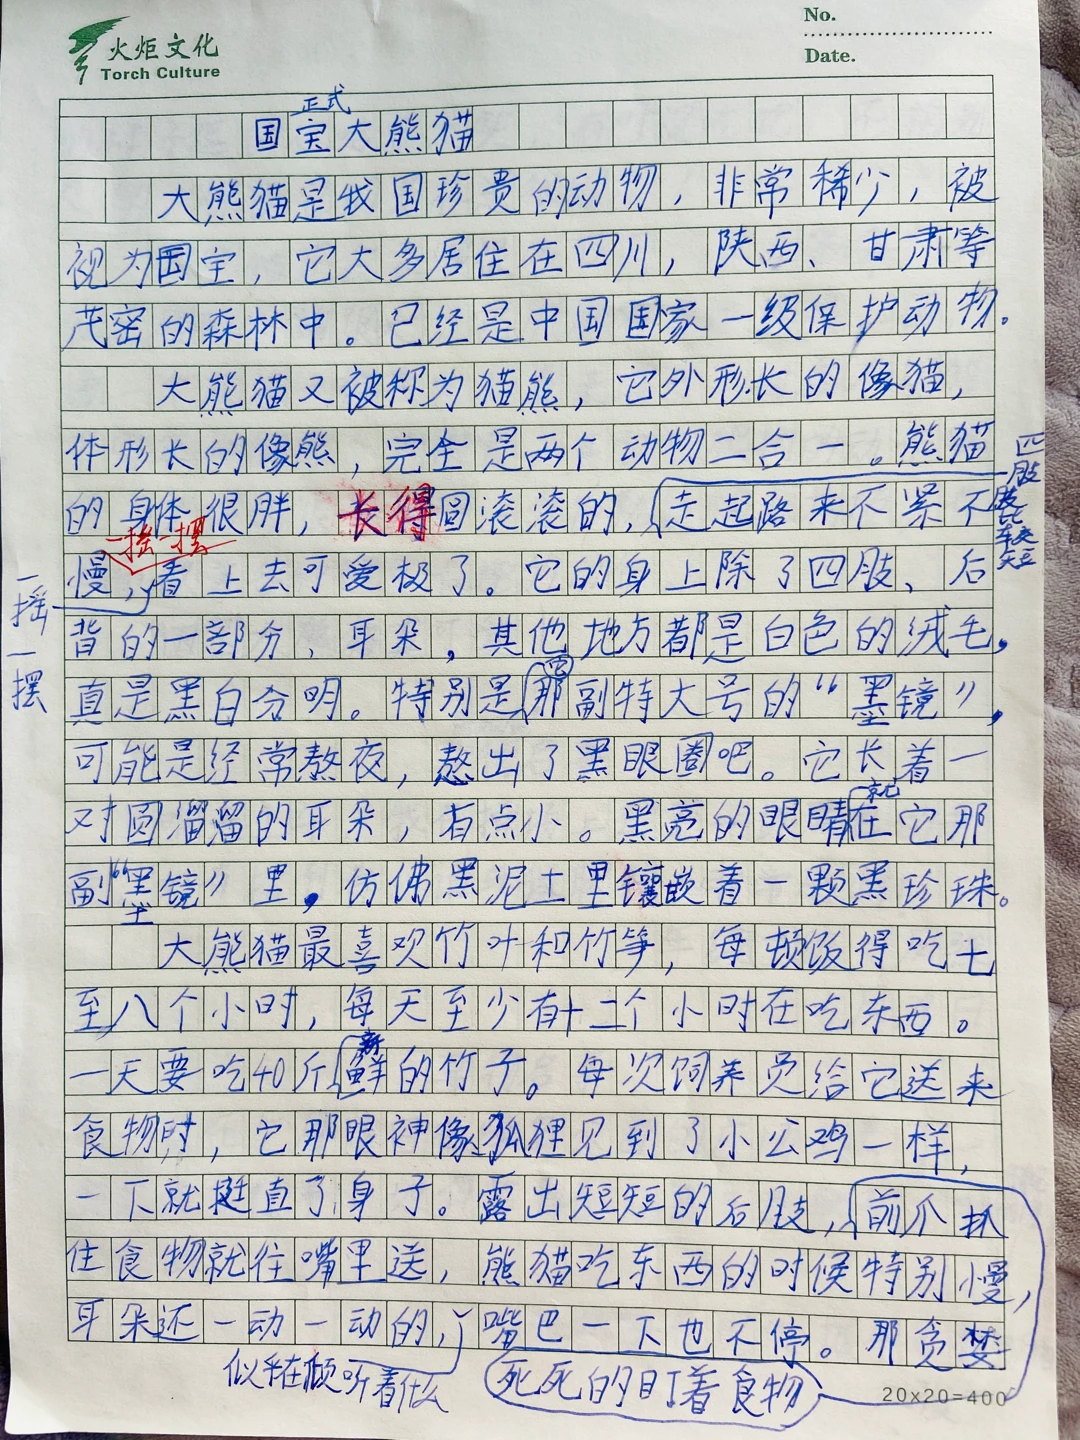 火炬文化
Torch Culture
No.
Date.
正式
国宝大熊猫
大熊猫是我国珍贵的动物，非常稀少，被
视为国宝，它大多居住在四川，陕西、甘肃等
茂密的森林中。已经是中国国家一级保护动物。
大熊猫又被称为猫熊，它外形长的像猫，
体形长的像熊，完全是两个动物二合一。熊猫
四肢比较短
的身体很胖，长得圆滚滚的，走起路来不紧不
一摇一摆
慢，看上去可爱极了。它的身上除了四肢、后
一摇一摆
背的一部分、耳朵，其他地方都是白色的绒毛，
它
真是黑白分明。特别是那副特大号的“墨镜”，
可能是经常熬夜，熬出了黑眼圈吧。它长着一
就
对圆溜溜的耳朵，有点小。黑亮的眼睛在它那
副“墨镜”里，仿佛黑泥土里镶嵌着一颗黑珍珠。
大熊猫最喜欢竹叶和竹笋，每顿饭得吃七
至八个小时，每天至少有十二个小时在吃东西。
新
一天要吃40斤鲜的竹子。每次饲养员给它送来
食物时，它那眼神像狐狸见到了小公鸡一样，
一下就挺直了身子。露出短短的后肢，前爪抓
住食物就往嘴里送，熊猫吃东西的时候特别慢，
耳朵还一动一动的，嘴巴一下也不停。那贪婪
似乎在倾听着什么
死死的盯着食物
20×20=400